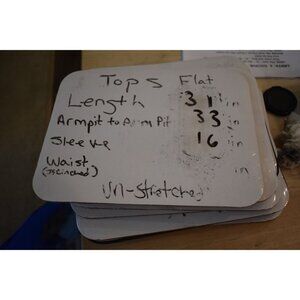 Tops Flat
Length 31 in
Armpit to Arm Pit 33 in
Sleeve 16 in
Waist in
(If Cinched)
Un-Stretched